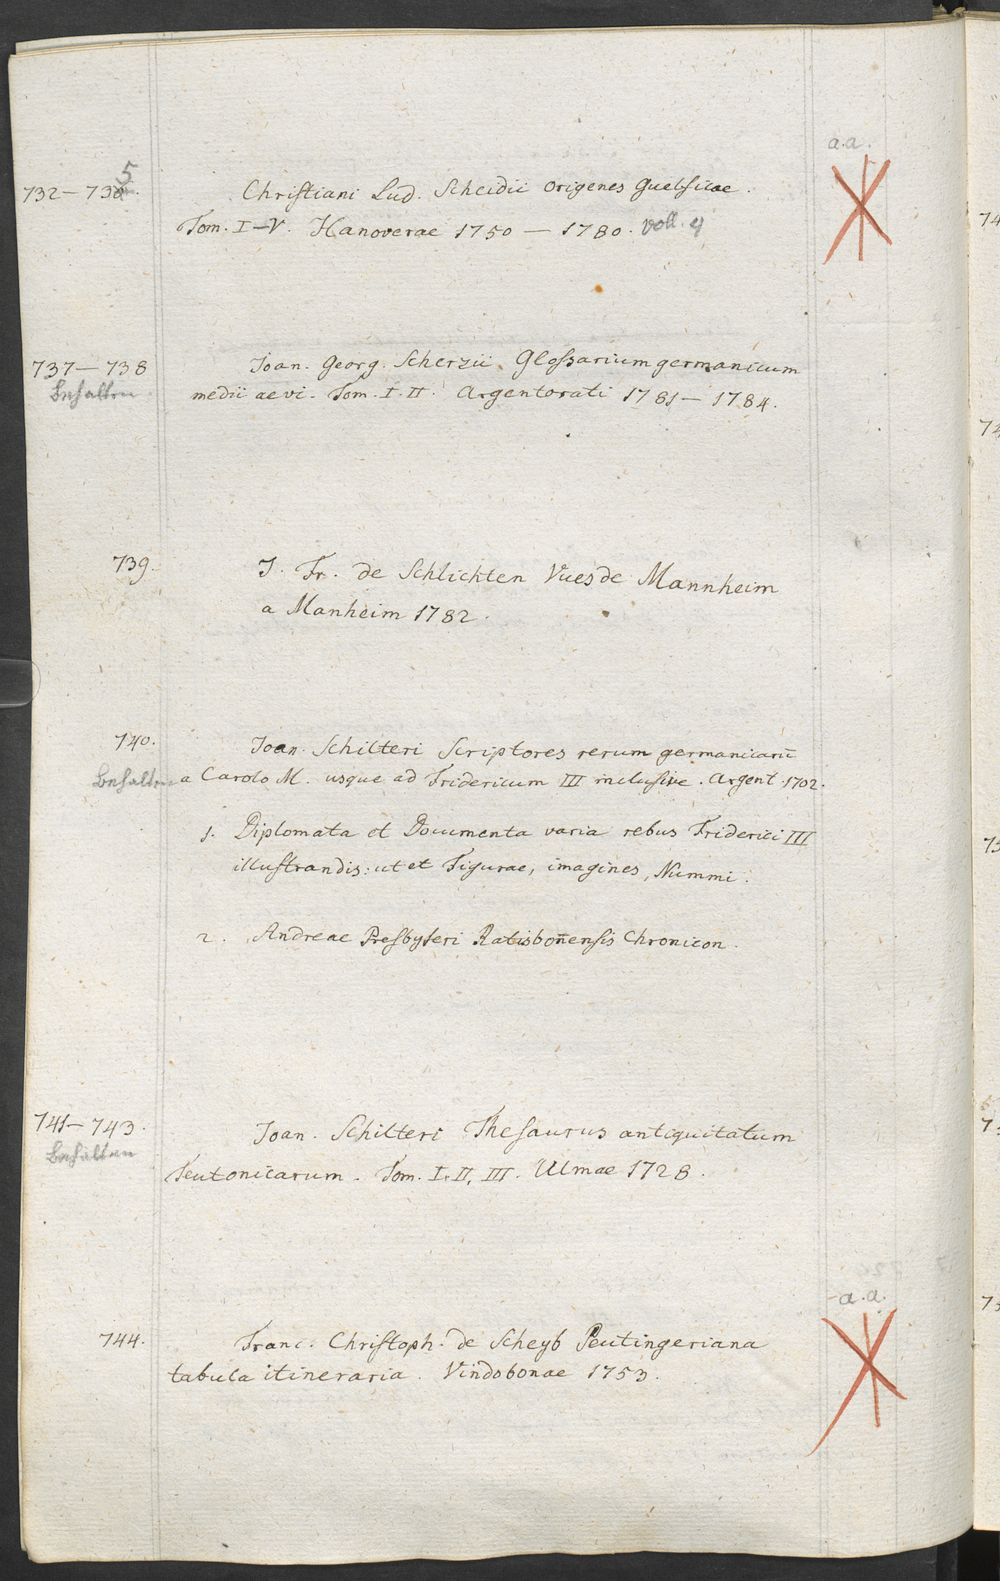 a.a.
5
732-736. Christiani Lud. Scheidii Origenes Guelficae.
Tom. I-V. Hanoverae 1750 - 1780. voll. 4
737-738 Joan. Georg. Scherzii Glossarium germanicum
behalten medii aevi. Tom. I. II. Argentorati 1781-1784.
739. J. Fr. de Schlichten Vues de Mannheim
a Manheim 1782.
740. Joan. Schilteri Scriptores rerum germanicarū
behalten a Carolo M. usque ad Fridericum III inclusive. Argent. 1702.
1. Diplomata et Documenta varia rebus Friderici III
illustrandis: ut et Figurae, imagines, Nummi.
2. Andreae Presbyteri Ratisbon̄ensis Chronicon.
741-743. Joan. Schilteri Thesaurus antiquitatum
behalten
Teutonicarum. Tom. I. II, III. Ulmae 1728.
a.a.
744. Franc. Christoph. de Scheyb Peutingeriana
tabula itineraria. Vindobonae 1753.